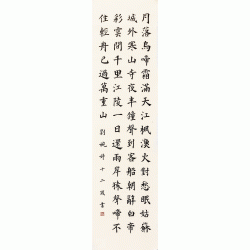 月落烏啼霜滿天江楓漁火對愁眠姑蘇
城外寒山寺夜半鐘聲到客船朝辭白帝
彩雲間千里江陵一日還兩岸猿聲啼不
住輕舟已過萬重山 劉婉婷十二歲書